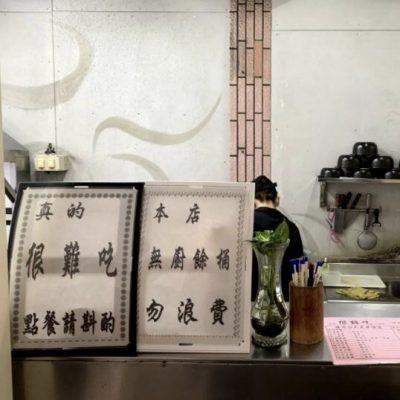 真的
很難吃
點餐請斟酌
本店
無廚餘桶
勿浪費